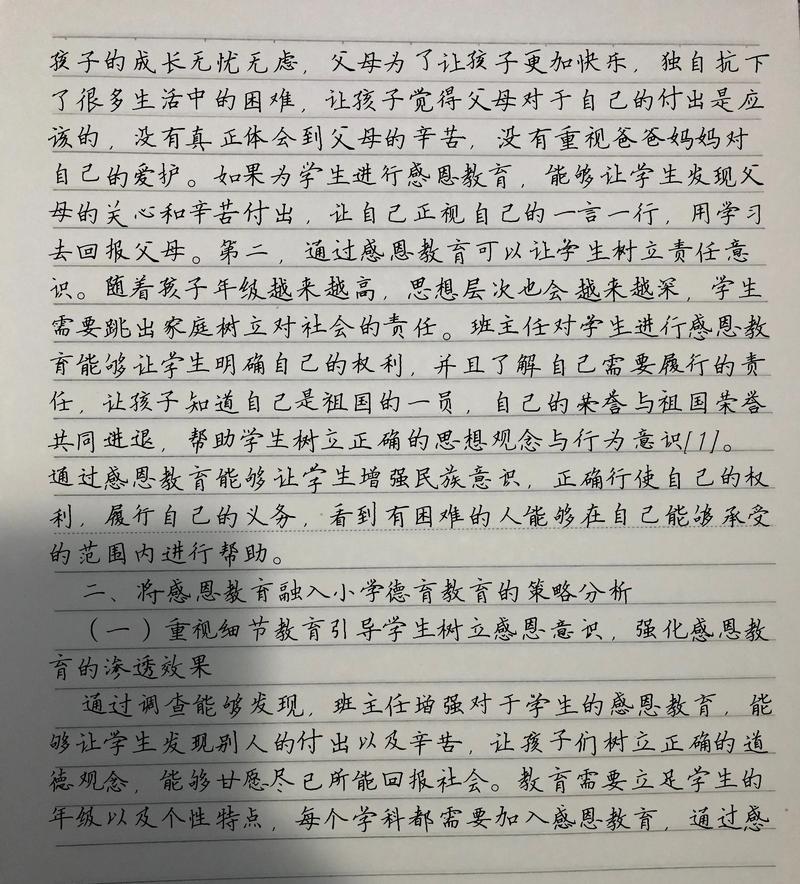 孩子的成长无忧无虑，父母为了让孩子更加快乐，独自抗下
了很多生活中的困难，让孩子觉得父母对于自己的付出是应
该的，没有真正体会到父母的辛苦，没有重视爸爸妈妈对
自己的爱护。如果为学生进行感恩教育，能够让学生发现父
母的关心和辛苦付出，让自己正视自己的一言一行，用学习
去回报父母。第二，通过感恩教育可以让学生树立责任意
识。随着孩子年级越来越高，思想层次也会越来越深，学生
需要跳出家庭树立对社会的责任。班主任对学生进行感恩教
育能够让学生明确自己的权利，并且了解自己需要履行的责
任，让孩子知道自己是祖国的一员，自己的荣誉与祖国荣誉
共同进退，帮助学生树立正确的思想观念与行为意识[1]。
通过感恩教育能够让学生增强民族意识，正确行使自己的权
利，履行自己的义务，看到有困难的人能够在自己能够承受
的范围内进行帮助。
二、将感恩教育融入小学德育教育的策略分析
（一）重视细节教育引导学生树立感恩意识，强化感恩教
育的渗透效果
通过调查能够发现，班主任增强对于学生的感恩教育，能
够让学生发现别人的付出以及辛苦，让孩子们树立正确的道
德观念，能够甘愿尽已所能回报社会。教育需要立足学生的
年级以及个性特点，每个学科都需要加入感恩教育，通过感